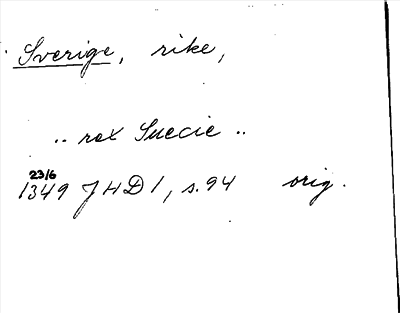 Sverige, rike,
.. rex Suecie ..
23/6
1349 JHD 1, s. 94 orig.